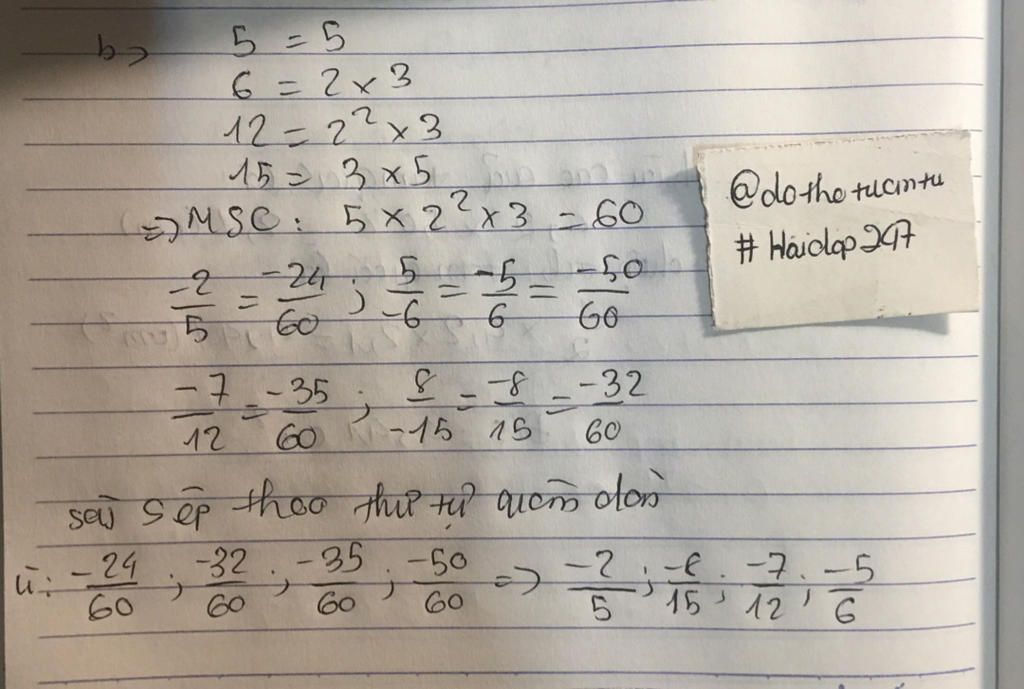 b⇒ 5 = 5
6 = 2 × 3
12 = 2² × 3
15 = 3 × 5
⇒ MSC: 5 × 2² × 3 = 60
-2/5 = -24/60 ; 5/-6 = -5/6 = -50/60
-7/12 = -35/60 ; 8/-15 = -8/15 = -32/60
sếp theo thứ tự dần
-24/60 ; -32/60 ; -35/60 ; -50/60 => -2/5 ; -8/15 ; -7/12 ; -5/6
@dothetucintu
# Hoidap247